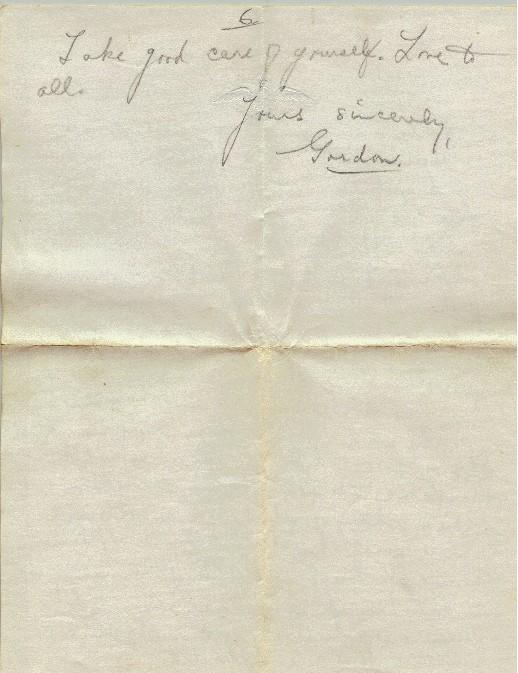 6.
Take good care of yourself. Love to
all.
Yours sincerely,
Gordon.